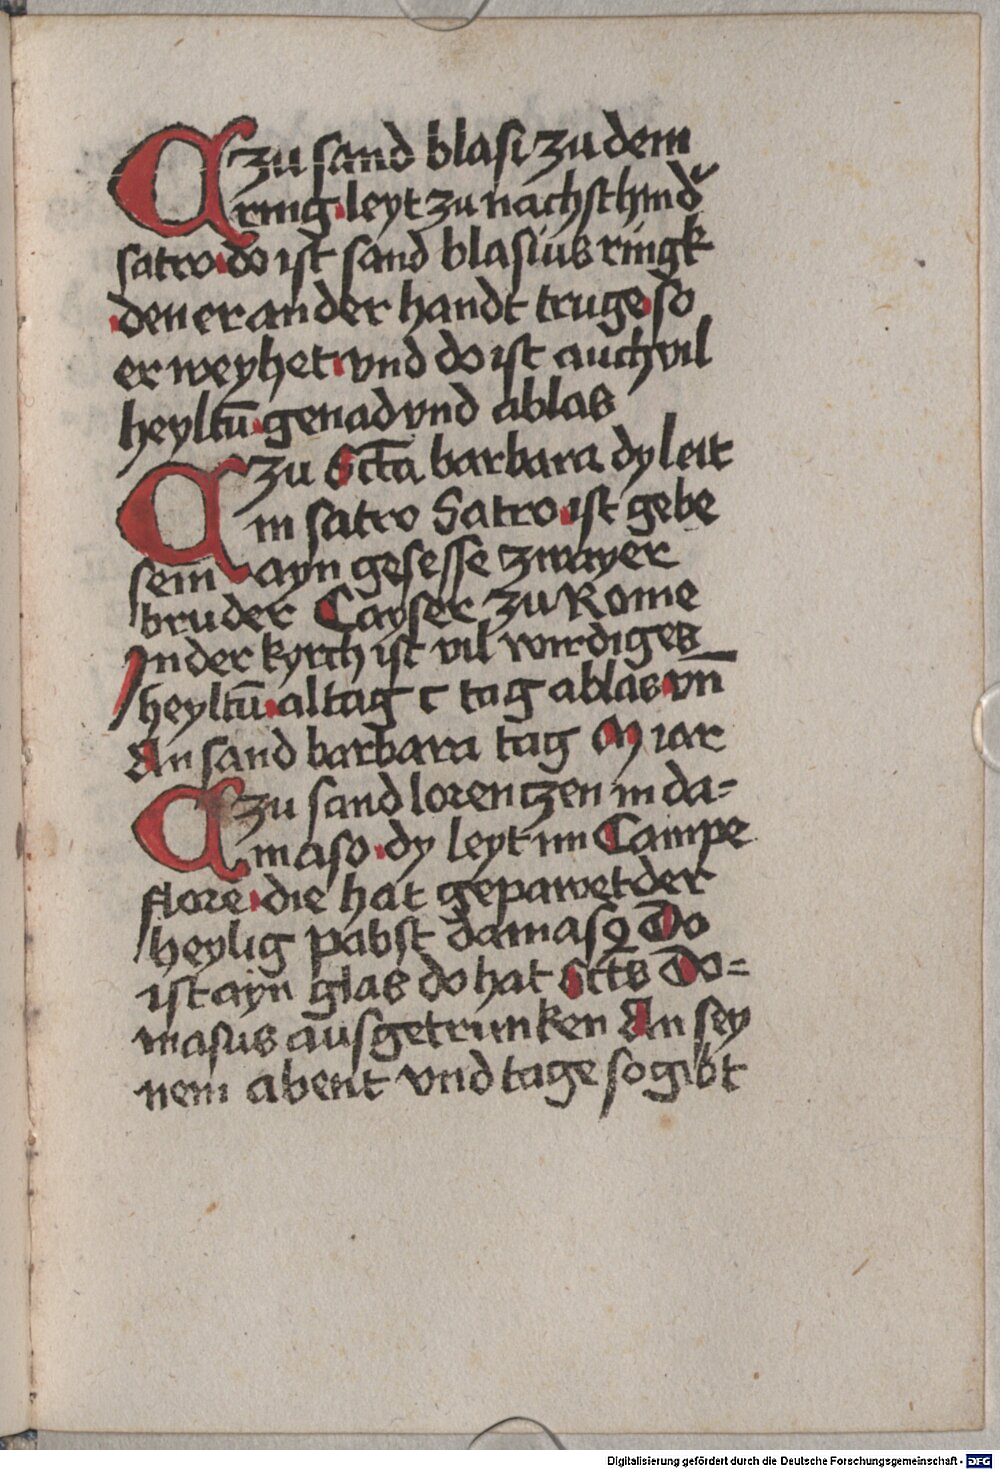 ¶ zu sand blasi zu dem
ring · leyt zu nachst hindʼ
satro · do ist sand blasius ringk
den er an der handt truge · so
er weyhet · vnd do ist auch vil
heyltū · genad vnd ablas
¶ zu Sct̄a barbara dy leit
in satro Satro · ist gebe
sein ayn gesesse zwayer
bruder Cayser zu Rome
In der kyrch ist vil wirdiges
heyltū · al tag c tag ablas · vn̄
An sand barbara tag M iar
¶ zu sand lorenczen in da=
maso · dy leyt im Campe
flore · die hat gepawet der
heylig pabst damasꝯ Do
ist ayn glas do hat Sct̄s Do=
masus aus getrunken An sey
nem abent vnd tage so gibt
Digitalisierung gefördert durch die Deutsche Forschungsgemeinschaft - DFG